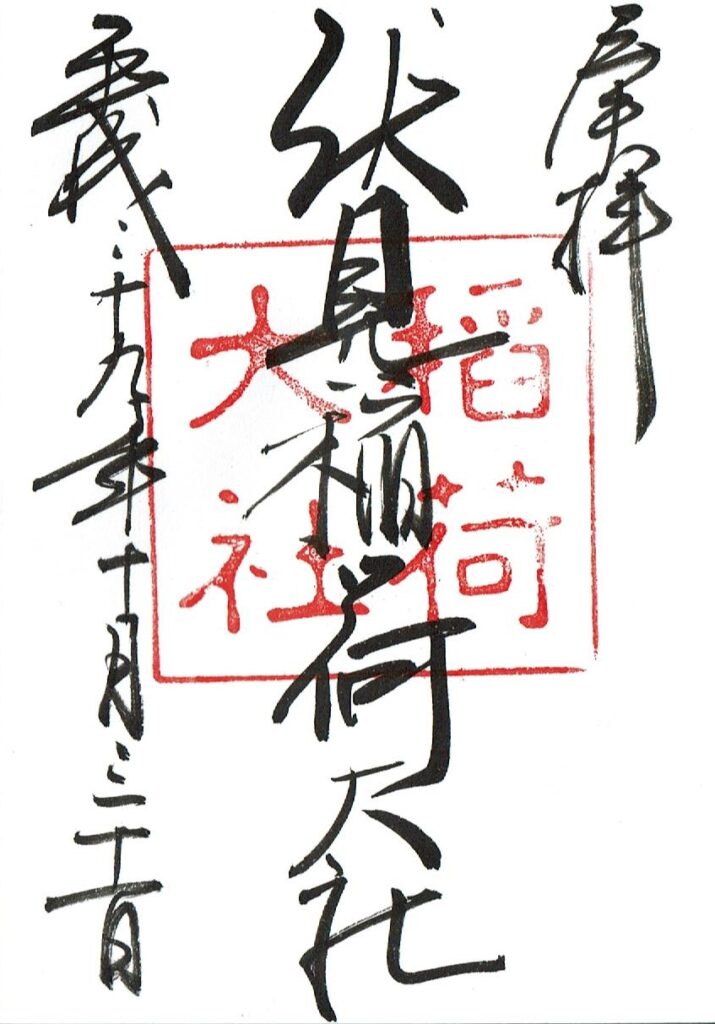 奉拝
伏見稲荷大社
平成二十九年十月三十一日
稲荷
大社